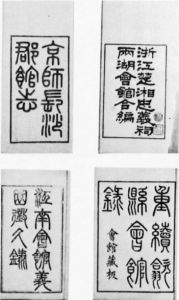 京師長沙
郡館志
浙江楚湘忠義祠
兩湖會館合編
江南會館義
重續歙
縣會館
錄
會館藏板